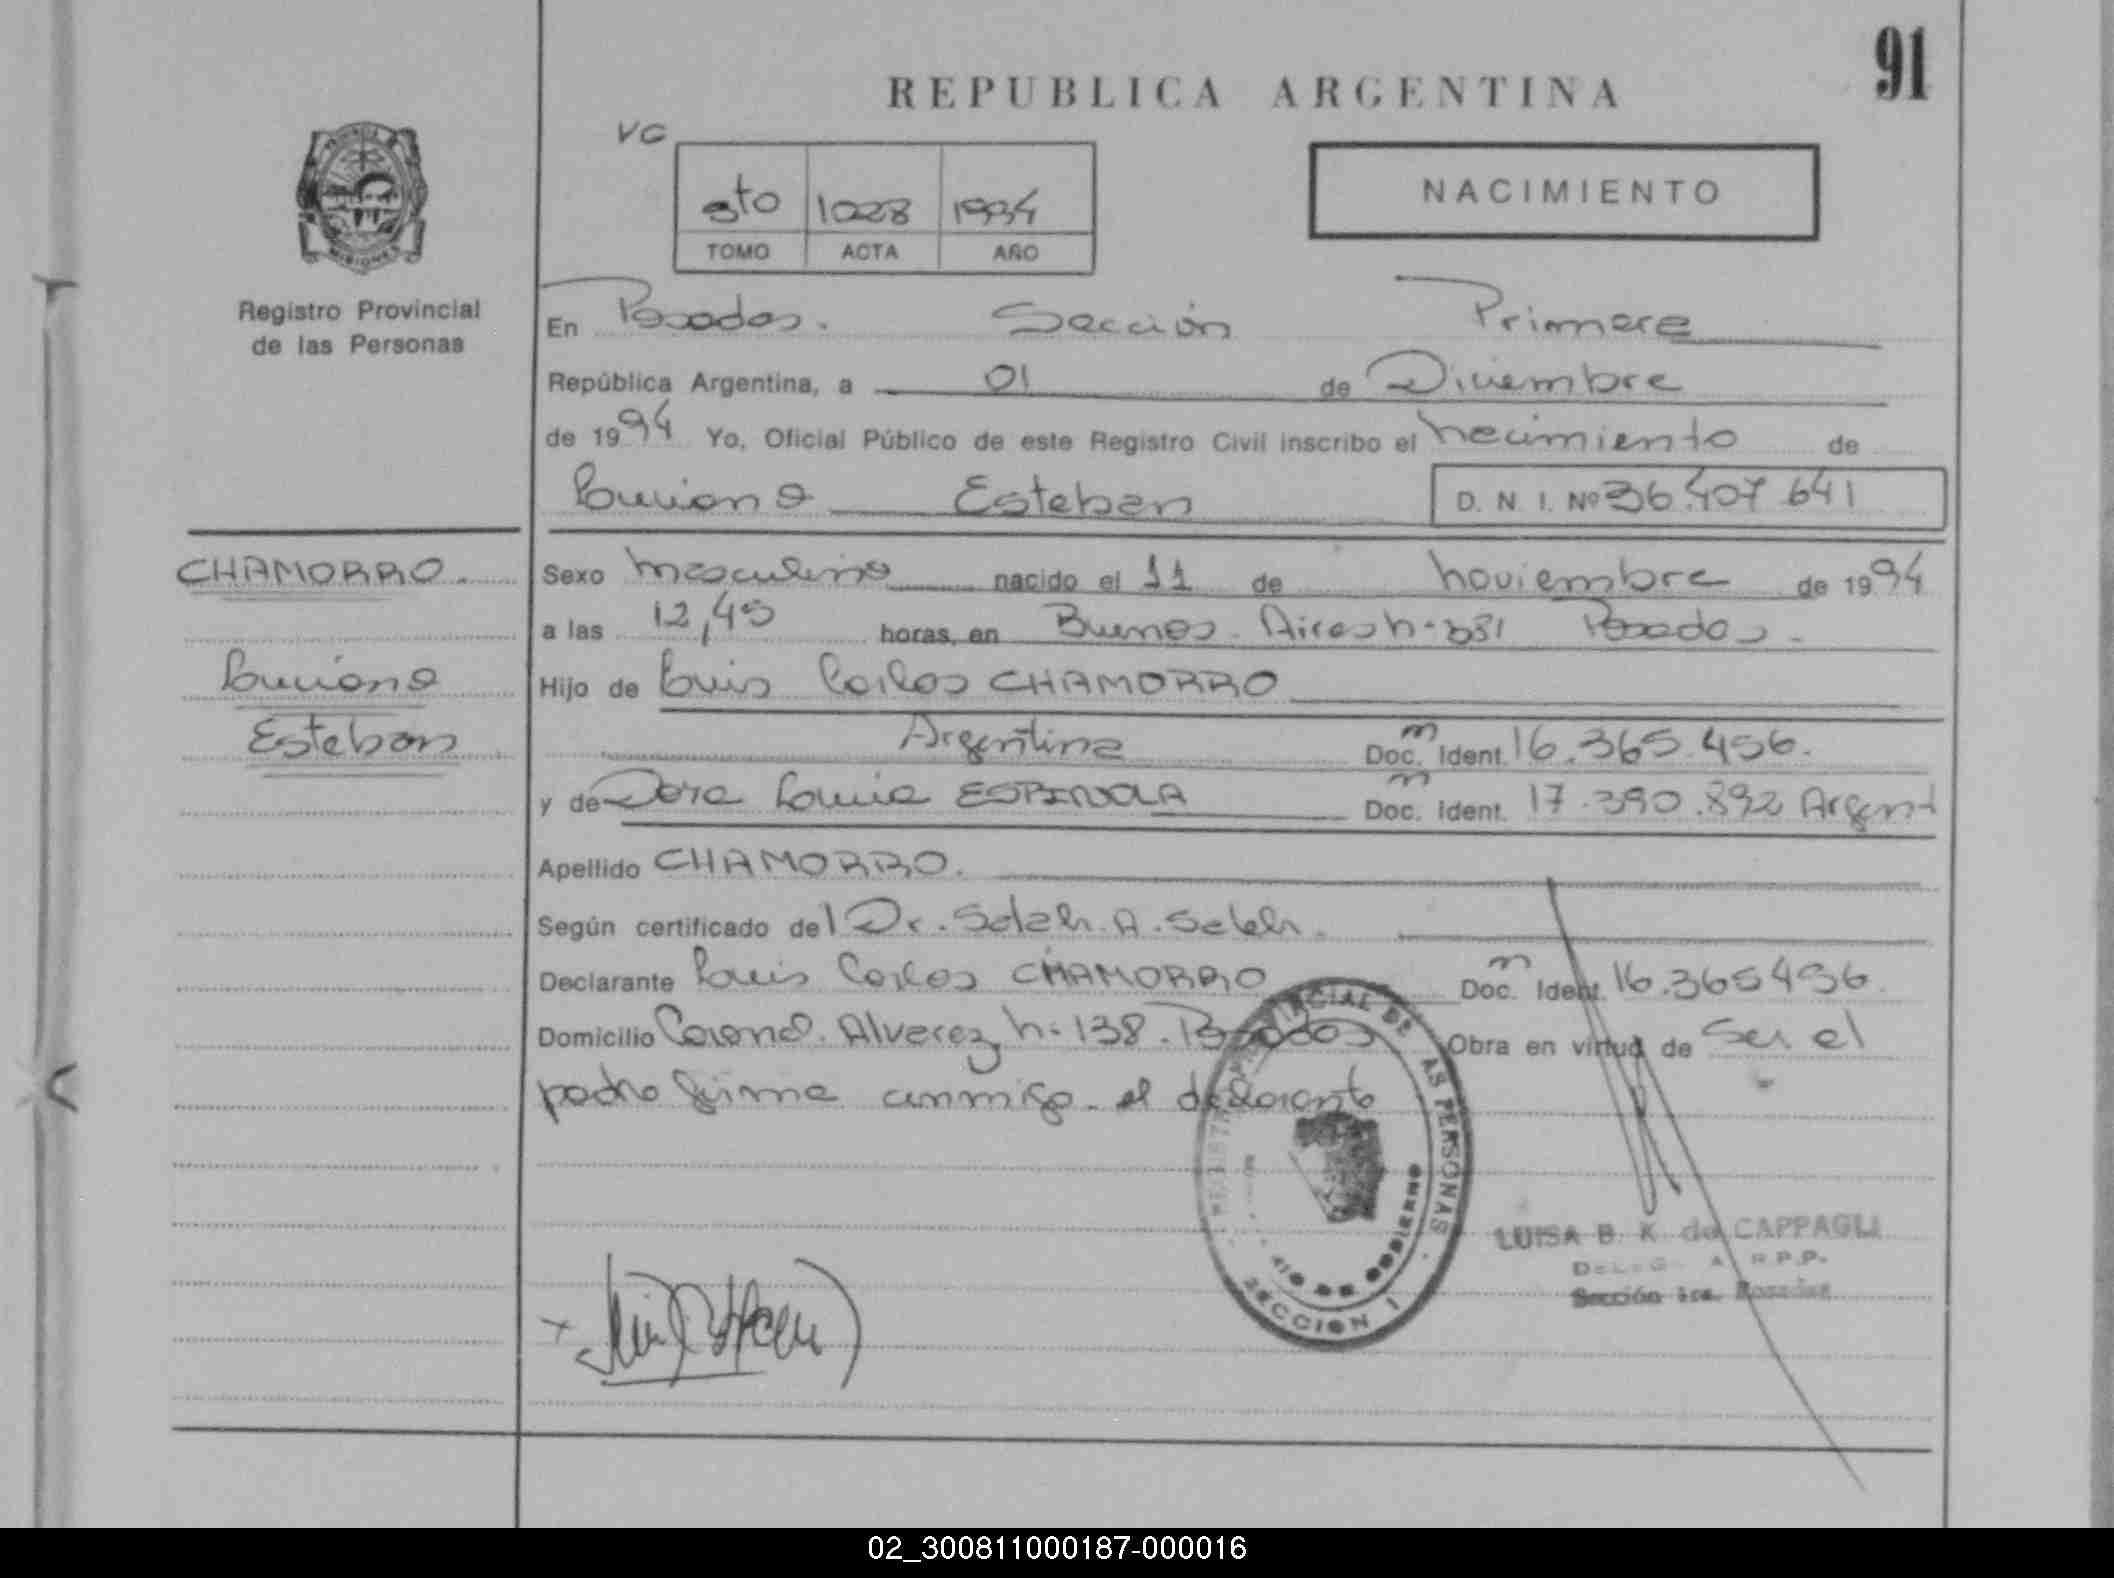 91
REPUBLICA ARGENTINA
VC
NACIMIENTO
5to 1028 1994
TOMO ACTA AÑO
MISIONES
Registro Provincial
de las Personas
En Posadas. Sección Primera
República Argentina, a 01 de Diciembre
de 1994 Yo, Oficial Público de este Registro Civil inscribo el nacimiento de
Luciano Esteban D. N. I. Nº 36.407 641
CHAMORRO.
Luciano
Esteban
Sexo masculino nacido el 11 de noviembre de 1994
a las 12,45 horas, en Buenos Aires n- Posadas.
Hijo de Luis Carlos CHAMORRO
Argentina Doc. m Ident. 16.365.456.
y de Dora Lucia ESPINOLA Doc. m Ident. 17.390.892 Argent
Apellido CHAMORRO.
Según certificado del Dr. Saleh. A. Saleh.
Declarante Luis Carlos CHAMORRO Doc. m Ident. 16.365456.
Domicilio Coronel. Alverez n- 138. Posadas Obra en virtud de Ser el
padre firma conmigo el declarante
AS PERSONAS
GOBIERNO
SECCION 1
LUISA B. K. de CAPPAGLI
R.P.P.
Sección 1ra. Posadas
02_300811000187-000016